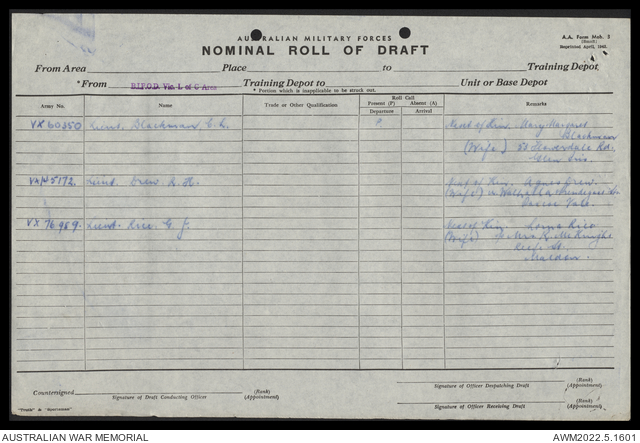 AUSTRALIAN MILITARY FORCES
A.A. Form Mob. 3
Reprinted April, 1942.
NOMINAL ROLL OF DRAFT
From Area Place to Training Depot,
*From D.I.P.O.D. Vic. L of C Area Training Depot to Unit or Base Depot
* Portion which is inapplicable to be struck out.
Army No. Name Trade or Other Qualification Roll Call Remarks
Present (P) Absent (A)
Departure Arrival
VX60350 Lieut. Blackman, C. P Next of Kin Mary Margaret
Blackman
(Wife) Rd.
Glen Iris.
Lieut. Drew R. H. Next of Kin Agnes Drew
(Wife)
Vale.
VX76989. Lieut. Rice G. J. Next of Kin Lorna Rice
(Wife) Mrs
St.
Maldon.
Countersigned (Rank)
Signature of Draft Conducting Officer (Appointment)
(Rank)
Signature of Officer Despatching Draft (Appointment)
(Rank)
Signature of Officer Receiving Draft (Appointment)
AUSTRALIAN WAR MEMORIAL AWM2022.5.1601